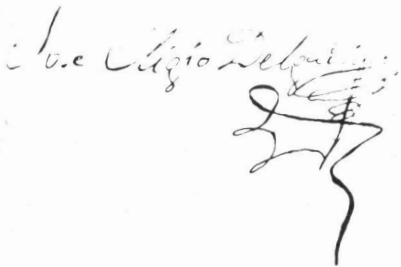 Jose Eligio Delgadi